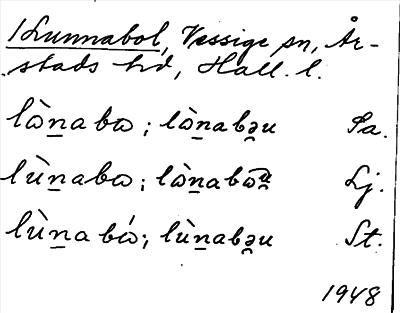 1 Lunnabol, Vessige sn, År-
stads hd, Hall. l.
lὼn̲abɷ; lὼn̲abə̯u Sa.
lùn̲abɷ; lὼn̲abɷu̯ Lj.
lùn̲abɷ́; lùn̲abə̯u St.
1948